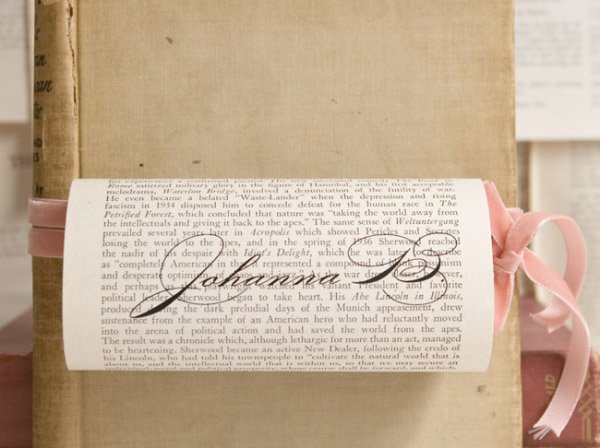 Rume satirized military glory in the figure of Hannibal, and his first acceptable
melodrama, Waterloo Bridge, involved a denunciation of the futility of war.
He even became a belated "Waste-Lander" when the depression and rising
fascism in 1934 disposed him to concede defeat for the human race in The
Petrified Forest, which concluded that nature was "taking the world away from
the intellectuals and giving it back to the apes." The same sense of Weltuntergang
prevailed several years later in Acropolis which showed Pericles and Socrates
losing the world to the apes, and in the spring of 1936 Sherwood reached
the nadir of his despair with Idiot's Delight, which he was later to describe
as "completely American in that it represented a compound of blank pessimism
and desperate optimism
Johanna B.
and perhaps
political leader Sherwood began to take heart. His Abe Lincoln in Illinois,
produced during the dark preludial days of the Munich appeasement, drew
sustenance from the example of an American hero who had reluctantly moved
into the arena of political action and had saved the world from the apes.
The result was a chronicle which, although lethargic for more than an act, managed
to be heartening. Sherwood became an active New Dealer, following the credo of
his Lincoln, who had told his townspeople to "cultivate the natural world that is
about us, and the intellectual world that is within us, so that we may secure an